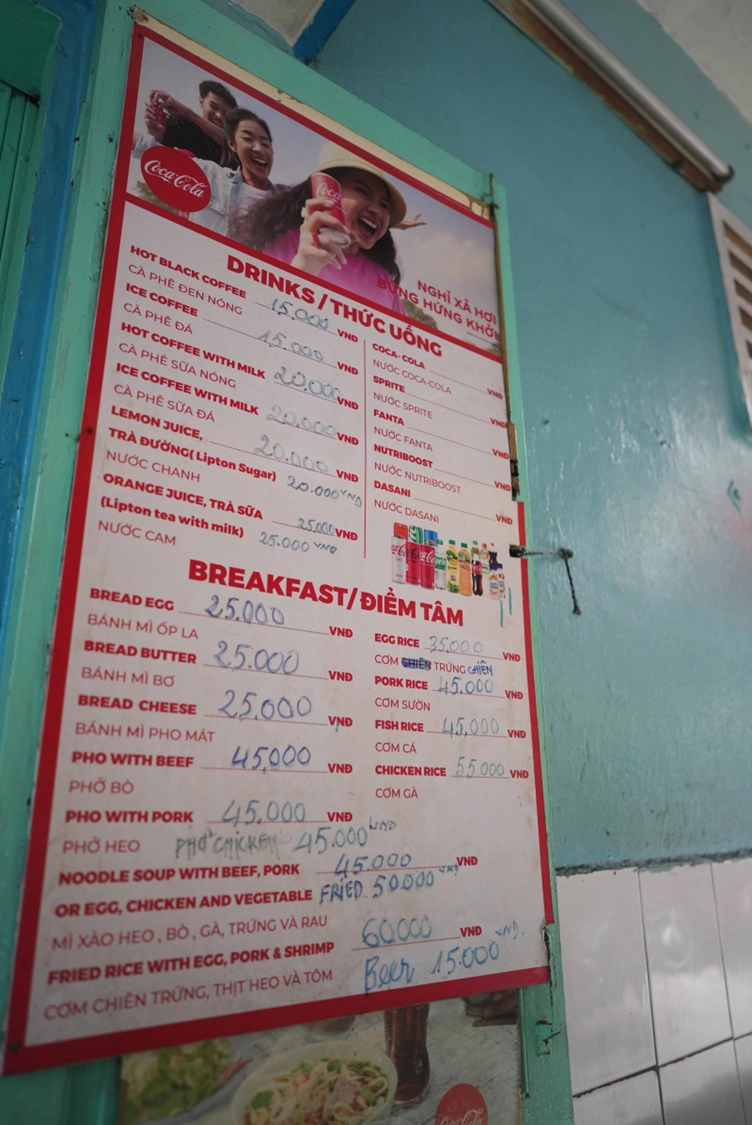 Coca-Cola
Coca
NGHỈ XẢ HƠI
BỪNG HỨNG KHỞI
DRINKS / THỨC UỐNG
HOT BLACK COFFEE 15.000 VNĐ
CÀ PHÊ ĐEN NÓNG
ICE COFFEE 15.000 VNĐ
CÀ PHÊ ĐÁ
HOT COFFEE WITH MILK 20.000 VNĐ
CÀ PHÊ SỮA NÓNG
ICE COFFEE WITH MILK 20.000 VNĐ
CÀ PHÊ SỮA ĐÁ
LEMON JUICE, 20.000 VNĐ
TRÀ ĐƯỜNG( Lipton Sugar) 20.000 VND
NƯỚC CHANH
ORANGE JUICE, TRÀ SỮA 25.000 VNĐ
(Lipton tea with milk) 25.000 VND
NƯỚC CAM
COCA- COLA VNĐ
NƯỚC COCA-COLA
SPRITE VNĐ
NƯỚC SPRITE
FANTA VNĐ
NƯỚC FANTA
NUTRIBOOST VNĐ
NƯỚC NUTRIBOOST
DASANI VNĐ
NƯỚC DASANI
BREAKFAST/ ĐIỂM TÂM
BREAD EGG 25.000 VNĐ
BÁNH MÌ ỐP LA
BREAD BUTTER 25.000 VNĐ
BÁNH MÌ BƠ
BREAD CHEESE 25.000 VNĐ
BÁNH MÌ PHO MÁT
PHO WITH BEEF 45,000 VNĐ
PHỞ BÒ
PHO WITH PORK 45,000 VNĐ
PHỞ HEO PHỞ CHICKEN 45.000 VND
NOODLE SOUP WITH BEEF, PORK 45.000 VNĐ
OR EGG, CHICKEN AND VEGETABLE FRIED 50.000 VND
MÌ XÀO HEO , BÒ , GÀ, TRỨNG VÀ RAU
FRIED RICE WITH EGG, PORK & SHRIMP 60.000 VNĐ
CƠM CHIÊN TRỨNG, THỊT HEO VÀ TÔM Beer 15.000 VND.
EGG RICE 35.000 VNĐ
CƠM CHIÊN TRỨNG CHIÊN
PORK RICE 45.000 VNĐ
CƠM SƯỜN
FISH RICE 45,000 VNĐ
CƠM CÁ
CHICKEN RICE 55.000 VNĐ
CƠM GÀ